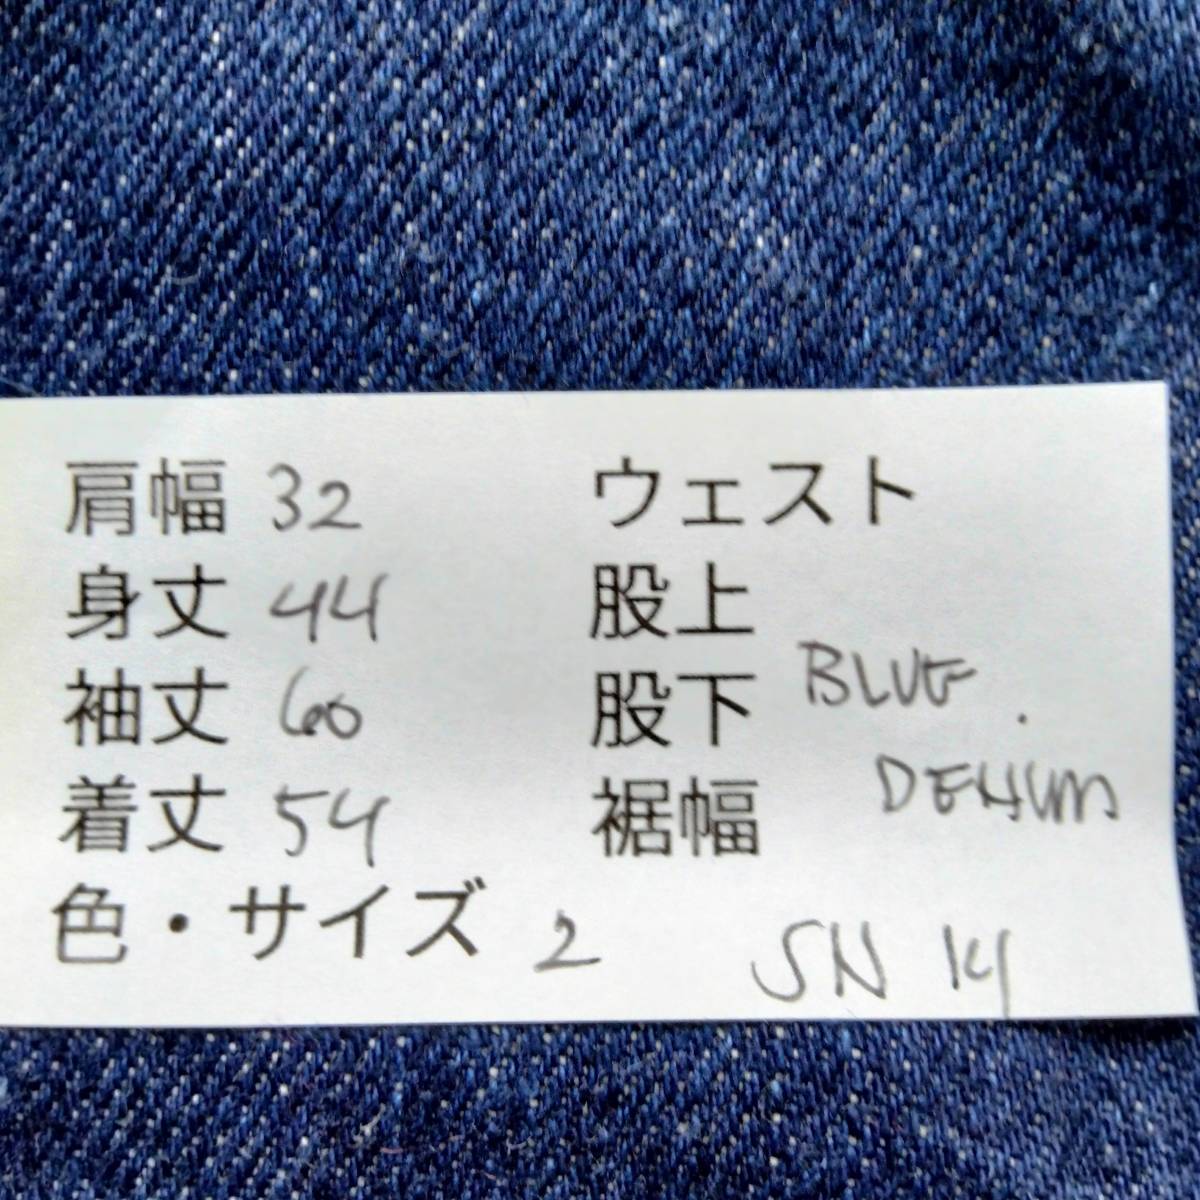 肩幅 32 ウェスト
身丈 44 股上
袖丈 60 股下 BLUE
着丈 54 裾幅 DENIM
色・サイズ 2 SN 14